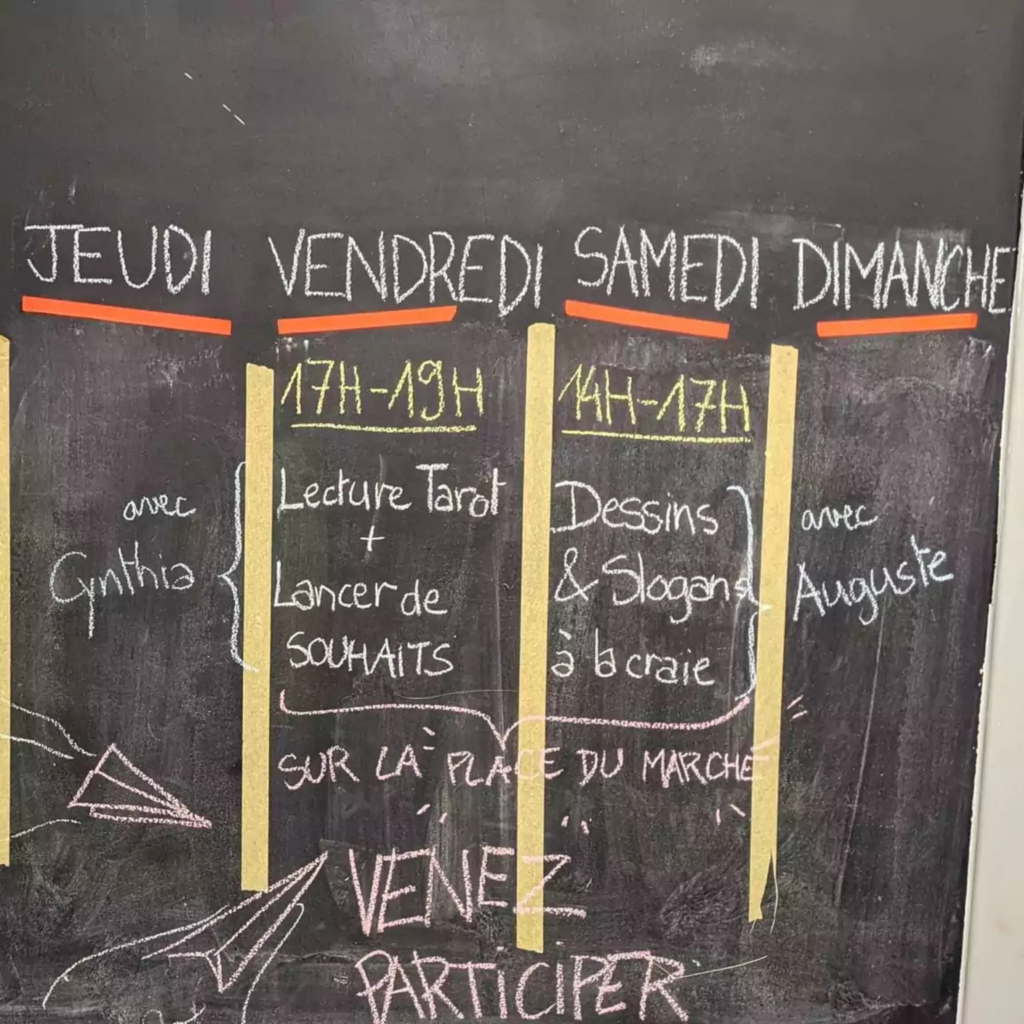 JEUDI VENDREDI SAMEDI DIMANCHE
17H-19H
14H-17H
avec
Cynthia
Lecture Tarot
+
Lancer de
SOUHAITS
Dessins
& Slogans
à la craie
avec
Auguste
SUR LA PLACE DU MARCHÉ
VENEZ
PARTICIPER